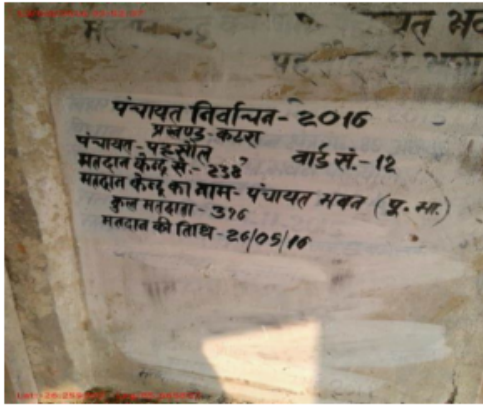 पंचायत निर्वाचन - 2016
प्रखण्ड - कटरा
पंचायत - पहसौल वार्ड सं. - 12
मतदान केन्द्र सं. - 238
मतदान केन्द्र का नाम - पंचायत भवन (पू. भा.)
कुल मतदाता - 396
मतदान की तिथि - 26/05/16